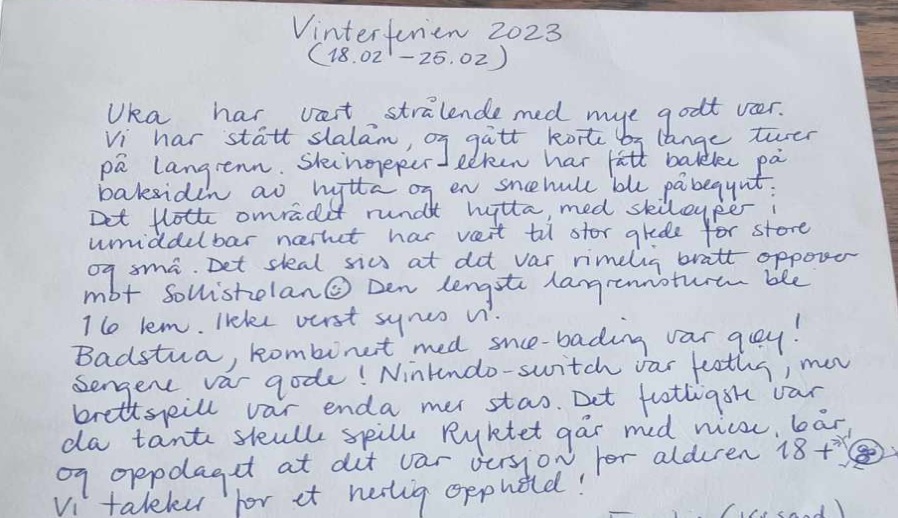 Vinterferien 2023
(18.02 - 25.02)
Uka har vært strålende med mye godt vær.
Vi har stått slalåm, og gått korte og lange turer
på langrenn. Skihopper-leken har fått bakke på
baksiden av hytta og en snøhule ble påbegynt.
Det flotte området rundt hytta, med skiløyper i
umiddelbar nærhet har vært til stor glede for store
og små. Det skal sies at det var rimelig bratt oppover
mot Sollistølan☺ Den lengste langrennsturen ble
16 km. Ikke verst synes vi.
Badstua, kombinert med snø-bading var gøy!
Sengene var gode! Nintendo-switch var festlig, men
brettspill var enda mer stas. Det festligste var
da tante skulle spille Ryktet går med niese, 6 år,
og oppdaget at det var versjon for alderen 18+
Vi takker for et herlig opphold!